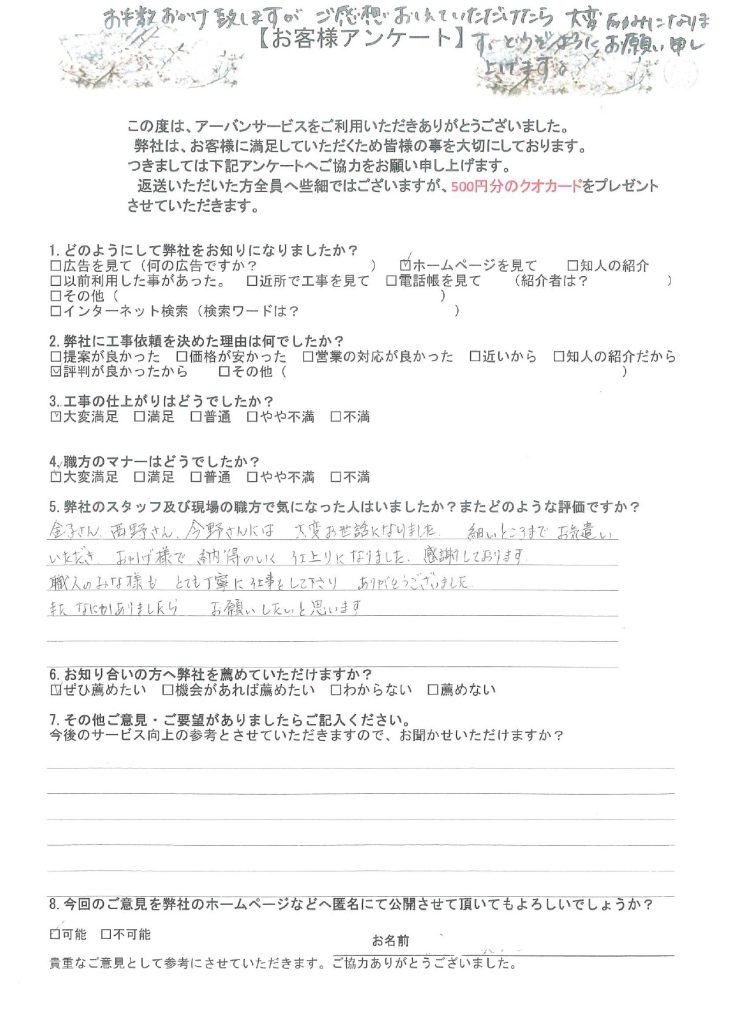 お手数おかけ致しますが ご感想おしえていただけたら 大変励みになりま
【お客様アンケート】す、どうぞよろしくお願い申し
上げます。
この度は、アーバンサービスをご利用いただきありがとうございました。
弊社は、お客様に満足していただくため皆様の事を大切にしております。
つきましては下記アンケートへご協力をお願い申し上げます。
返送いただいた方全員へ些細ではございますが、500円分のクオカードをプレゼント
させていただきます。
1. どのようにして弊社をお知りになりましたか？
□広告を見て（何の広告ですか？　　　　　　　　）　☑ホームページを見て　□知人の紹介
□以前利用した事があった。　□近所で工事を見て　□電話帳を見て　（紹介者は？　　　　　）
□その他（　　　　　　　　　　　　　　　　　　　　　　　）
□インターネット検索（検索ワードは？　　　　　　　　　　　）
2. 弊社に工事依頼を決めた理由は何でしたか？
□提案が良かった　□価格が安かった　□営業の対応が良かった　□近いから　□知人の紹介だから
☑評判が良かったから　　□その他（　　　　　　　　　　　　　　　　　　　　　　　）
3. 工事の仕上がりはどうでしたか？
☑大変満足　□満足　□普通　□やや不満　□不満
4. 職方のマナーはどうでしたか？
☑大変満足　□満足　□普通　□やや不満　□不満
5. 弊社のスタッフ及び現場の職方で気になった人はいましたか？またどのような評価ですか？
金子さん、西野さん、今野さんには 大変お世話になりました。 細いところまで お気遣い
いただき、おかげ様で 納得のいく 仕上りになりました。感謝しております。
職人のみな様も とても丁寧に仕事をして下さり ありがとうございました。
また なにかありましたら お願いしたいと思います
6. お知り合いの方へ弊社を薦めていただけますか？
☑ぜひ薦めたい　□機会があれば薦めたい　□わからない　□薦めない
7. その他ご意見・ご要望がありましたらご記入ください。
今後のサービス向上の参考とさせていただきますので、お聞かせいただけますか？
8. 今回のご意見を弊社のホームページなどへ匿名にて公開させて頂いてもよろしいでしょうか？
☑可能　□不可能
お名前
貴重なご意見として参考にさせていただきます。ご協力ありがとうございました。